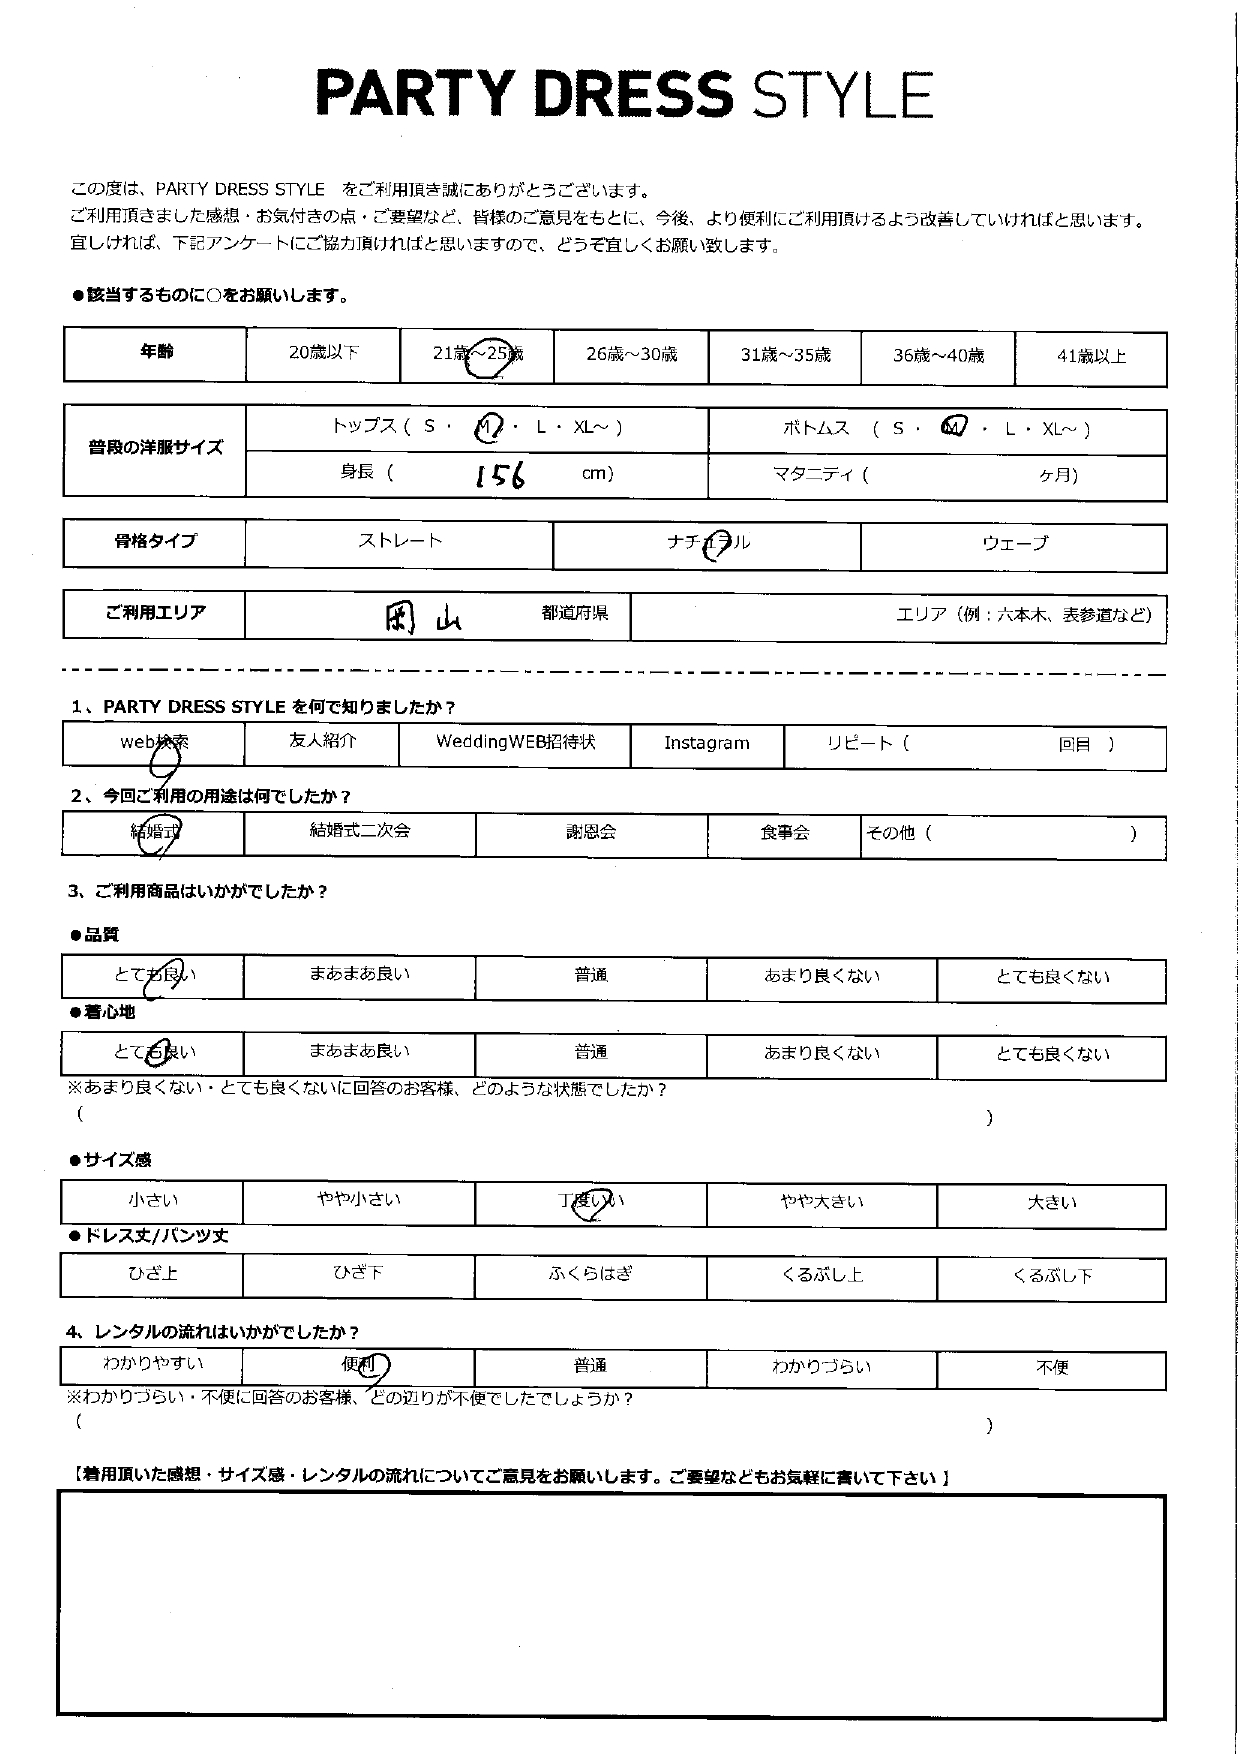 PARTY DRESS STYLE
この度は、PARTY DRESS STYLE をご利用頂き誠にありがとうございます。
ご利用頂きました感想・お気付きの点・ご要望など、皆様のご意見をもとに、今後、より便利にご利用頂けるよう改善していければと思います。
宜しければ、下記アンケートにご協力頂ければと思いますので、どうぞ宜しくお願い致します。
●該当するものに○をお願いします。
年齢 20歳以下 21歳～25歳 26歳～30歳 31歳～35歳 36歳～40歳 41歳以上
普段の洋服サイズ
トップス ( S ・ M ・ L ・ XL～ ) ボトムス ( S ・ M ・ L ・ XL～ )
身長 ( 156 cm) マタニティ ( ヶ月)
骨格タイプ ストレート ナチュラル ウェーブ
ご利用エリア 岡山 都道府県 エリア（例：六本木、表参道など）
1、PARTY DRESS STYLE を何で知りましたか？
web検索 友人紹介 WeddingWEB招待状 Instagram リピート ( 回目 )
2、今回ご利用の用途は何でしたか？
結婚式 結婚式二次会 謝恩会 食事会 その他 ( )
3、ご利用商品はいかがでしたか？
●品質
とても良い まあまあ良い 普通 あまり良くない とても良くない
●着心地
とても良い まあまあ良い 普通 あまり良くない とても良くない
※あまり良くない・とても良くないに回答のお客様、どのような状態でしたか？
( )
●サイズ感
小さい やや小さい 丁度いい やや大きい 大きい
●ドレス丈/パンツ丈
ひざ上 ひざ下 ふくらはぎ くるぶし上 くるぶし下
4、レンタルの流れはいかがでしたか？
わかりやすい 便利 普通 わかりづらい 不便
※わかりづらい・不便に回答のお客様、どの辺りが不便でしたでしょうか？
( )
【着用頂いた感想・サイズ感・レンタルの流れについてご意見をお願いします。ご要望などもお気軽に書いて下さい 】